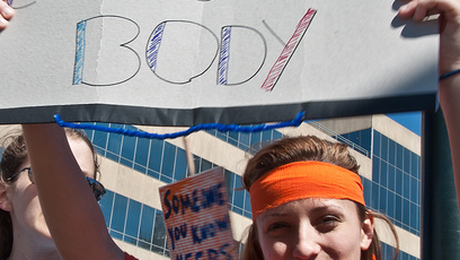 BODY
SOMEONE
YOU KNOW
NEEDS